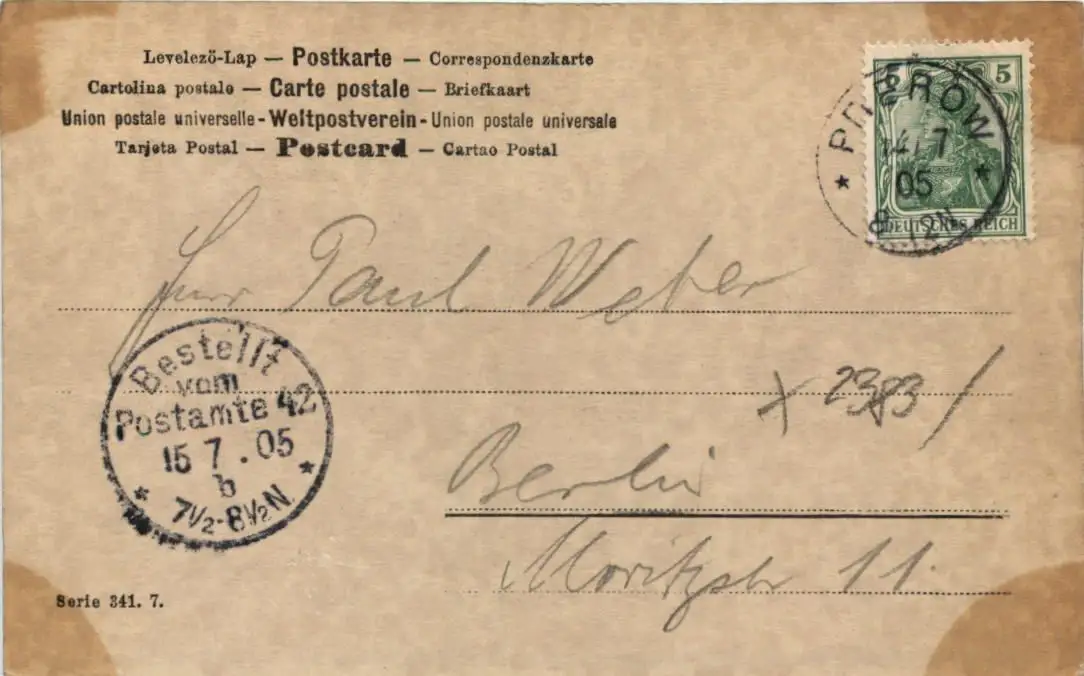 Levelező-Lap — Postkarte — Correspondenzkarte
Cartolina postale — Carte postale — Briefkaart
Union postale universelle - Weltpostverein - Union postale universale
Tarjeta Postal — Postcard — Cartao Postal
5
PREROW
14 7
05
8-12N
DEUTSCHES REICH
Paul Weber
Bestellt
vom
Postamte 42
15 7. 05
b
7½-8½N.
Berlin
Moritzstr 11.
Serie 341. 7.